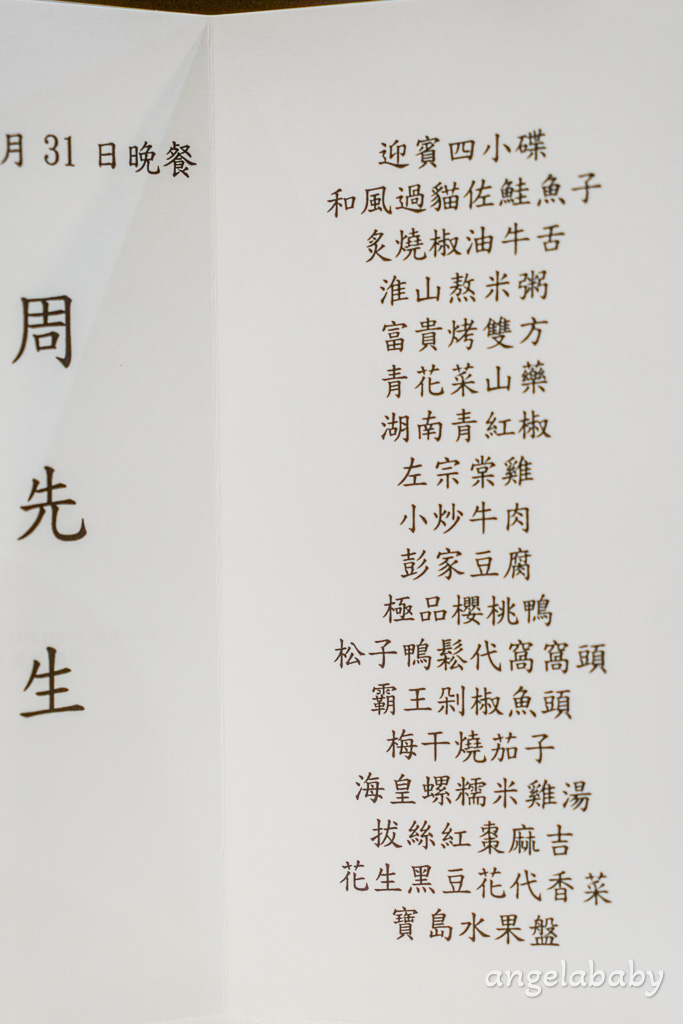 月 31 日晚餐
周先生
迎賓四小碟
和風過貓佐鮭魚子
炙燒椒油牛舌
淮山熬米粥
富貴烤雙方
青花菜山藥
湖南青紅椒
左宗棠雞
小炒牛肉
彭家豆腐
極品櫻桃鴨
松子鴨鬆代窩窩頭
霸王剁椒魚頭
梅干燒茄子
海皇螺糯米雞湯
拔絲紅棗麻吉
花生黑豆花代香菜
寶島水果盤
angelababy